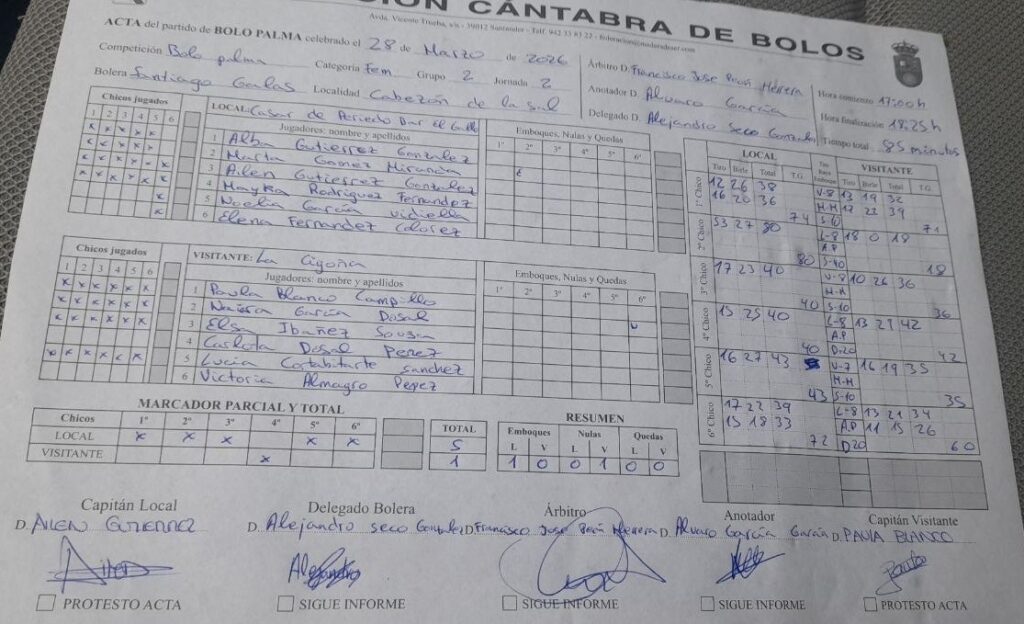 CIÓN CÁNTABRA DE BOLOS
Avda. Vicente Trueba, s/n - 39012 Santander - Telf. 942 33 81 22
ACTA del partido de BOLO PALMA celebrado el 28 de Marzo de 2026
Competición Bolo palma Categoría Fem Grupo 2 Jornada 2
Bolera Santiago Galas Localidad Cabezón de la Sal
Árbitro D. Francisco Jose
Anotador D. Alvaro García
Delegado D. Alejandro Seco Gonzalez
Hora comienzo 17:00h
Hora finalización 18:25h
Tiempo total 85 minutos
Chicos jugados
1 2 3 4 5 6
LOCAL: Casar de Periedo Bar el
Jugadores: nombre y apellidos
1 Alba Gutierrez Gonzalez
2 Marta Gomez Miranda
3 Ailen Gutierrez Gonzalez
4 Mayka Rodriguez Fernandez
5 Noelia García Vidiella
6 Elena Fernandez
Emboques, Nulas y Quedas
1º 2º 3º 4º 5º 6º
Chicos jugados
1 2 3 4 5 6
VISITANTE: La Cigoña
Jugadores: nombre y apellidos
1 Paula Blanco Campillo
2 Naiara García Dosal
3 Elsa Ibañez Sousa
4 Carlota Dosal Perez
5 Lucia Cortabitarte Sanchez
6 Victoria Almagro Perez
Emboques, Nulas y Quedas
1º 2º 3º 4º 5º 6º
LOCAL VISITANTE
Tiro Birle Total T.G. Tiro Birle Total T.G.
1º Chico
12 26 38 V-8 13 19 32
16 20 36 M-M 17 22 39
74 71
2º Chico
53 27 80 L-8 18 0 18
A.P
80 S-10 18
3º Chico
17 23 40 V-8 10 26 36
M-M
40 S-10 36
4º Chico
15 25 40 L-8 13 21 42
A.P
40 D-20 42
5º Chico
16 27 43 V-7 16 19 35
M-M
43 S-10 35
6º Chico
17 22 39 L-8 13 21 34
15 18 33 A.P 11 15 26
72 D20 60
MARCADOR PARCIAL Y TOTAL
Chicos 1º 2º 3º 4º 5º 6º TOTAL
LOCAL x x x x x 5
VISITANTE x 1
RESUMEN
Emboques Nulas Quedas
L V L V L V
1 0 0 1 0 0
Capitán Local
D. AILEN GUTIERREZ
Delegado Bolera
D. Alejandro Seco Gonzalez
Árbitro
D. Francisco Jose
Anotador
D. Alvaro García García
Capitán Visitante
D. PAULA BLANCO
PROTESTO ACTA
SIGUE INFORME
SIGUE INFORME
SIGUE INFORME
PROTESTO ACTA